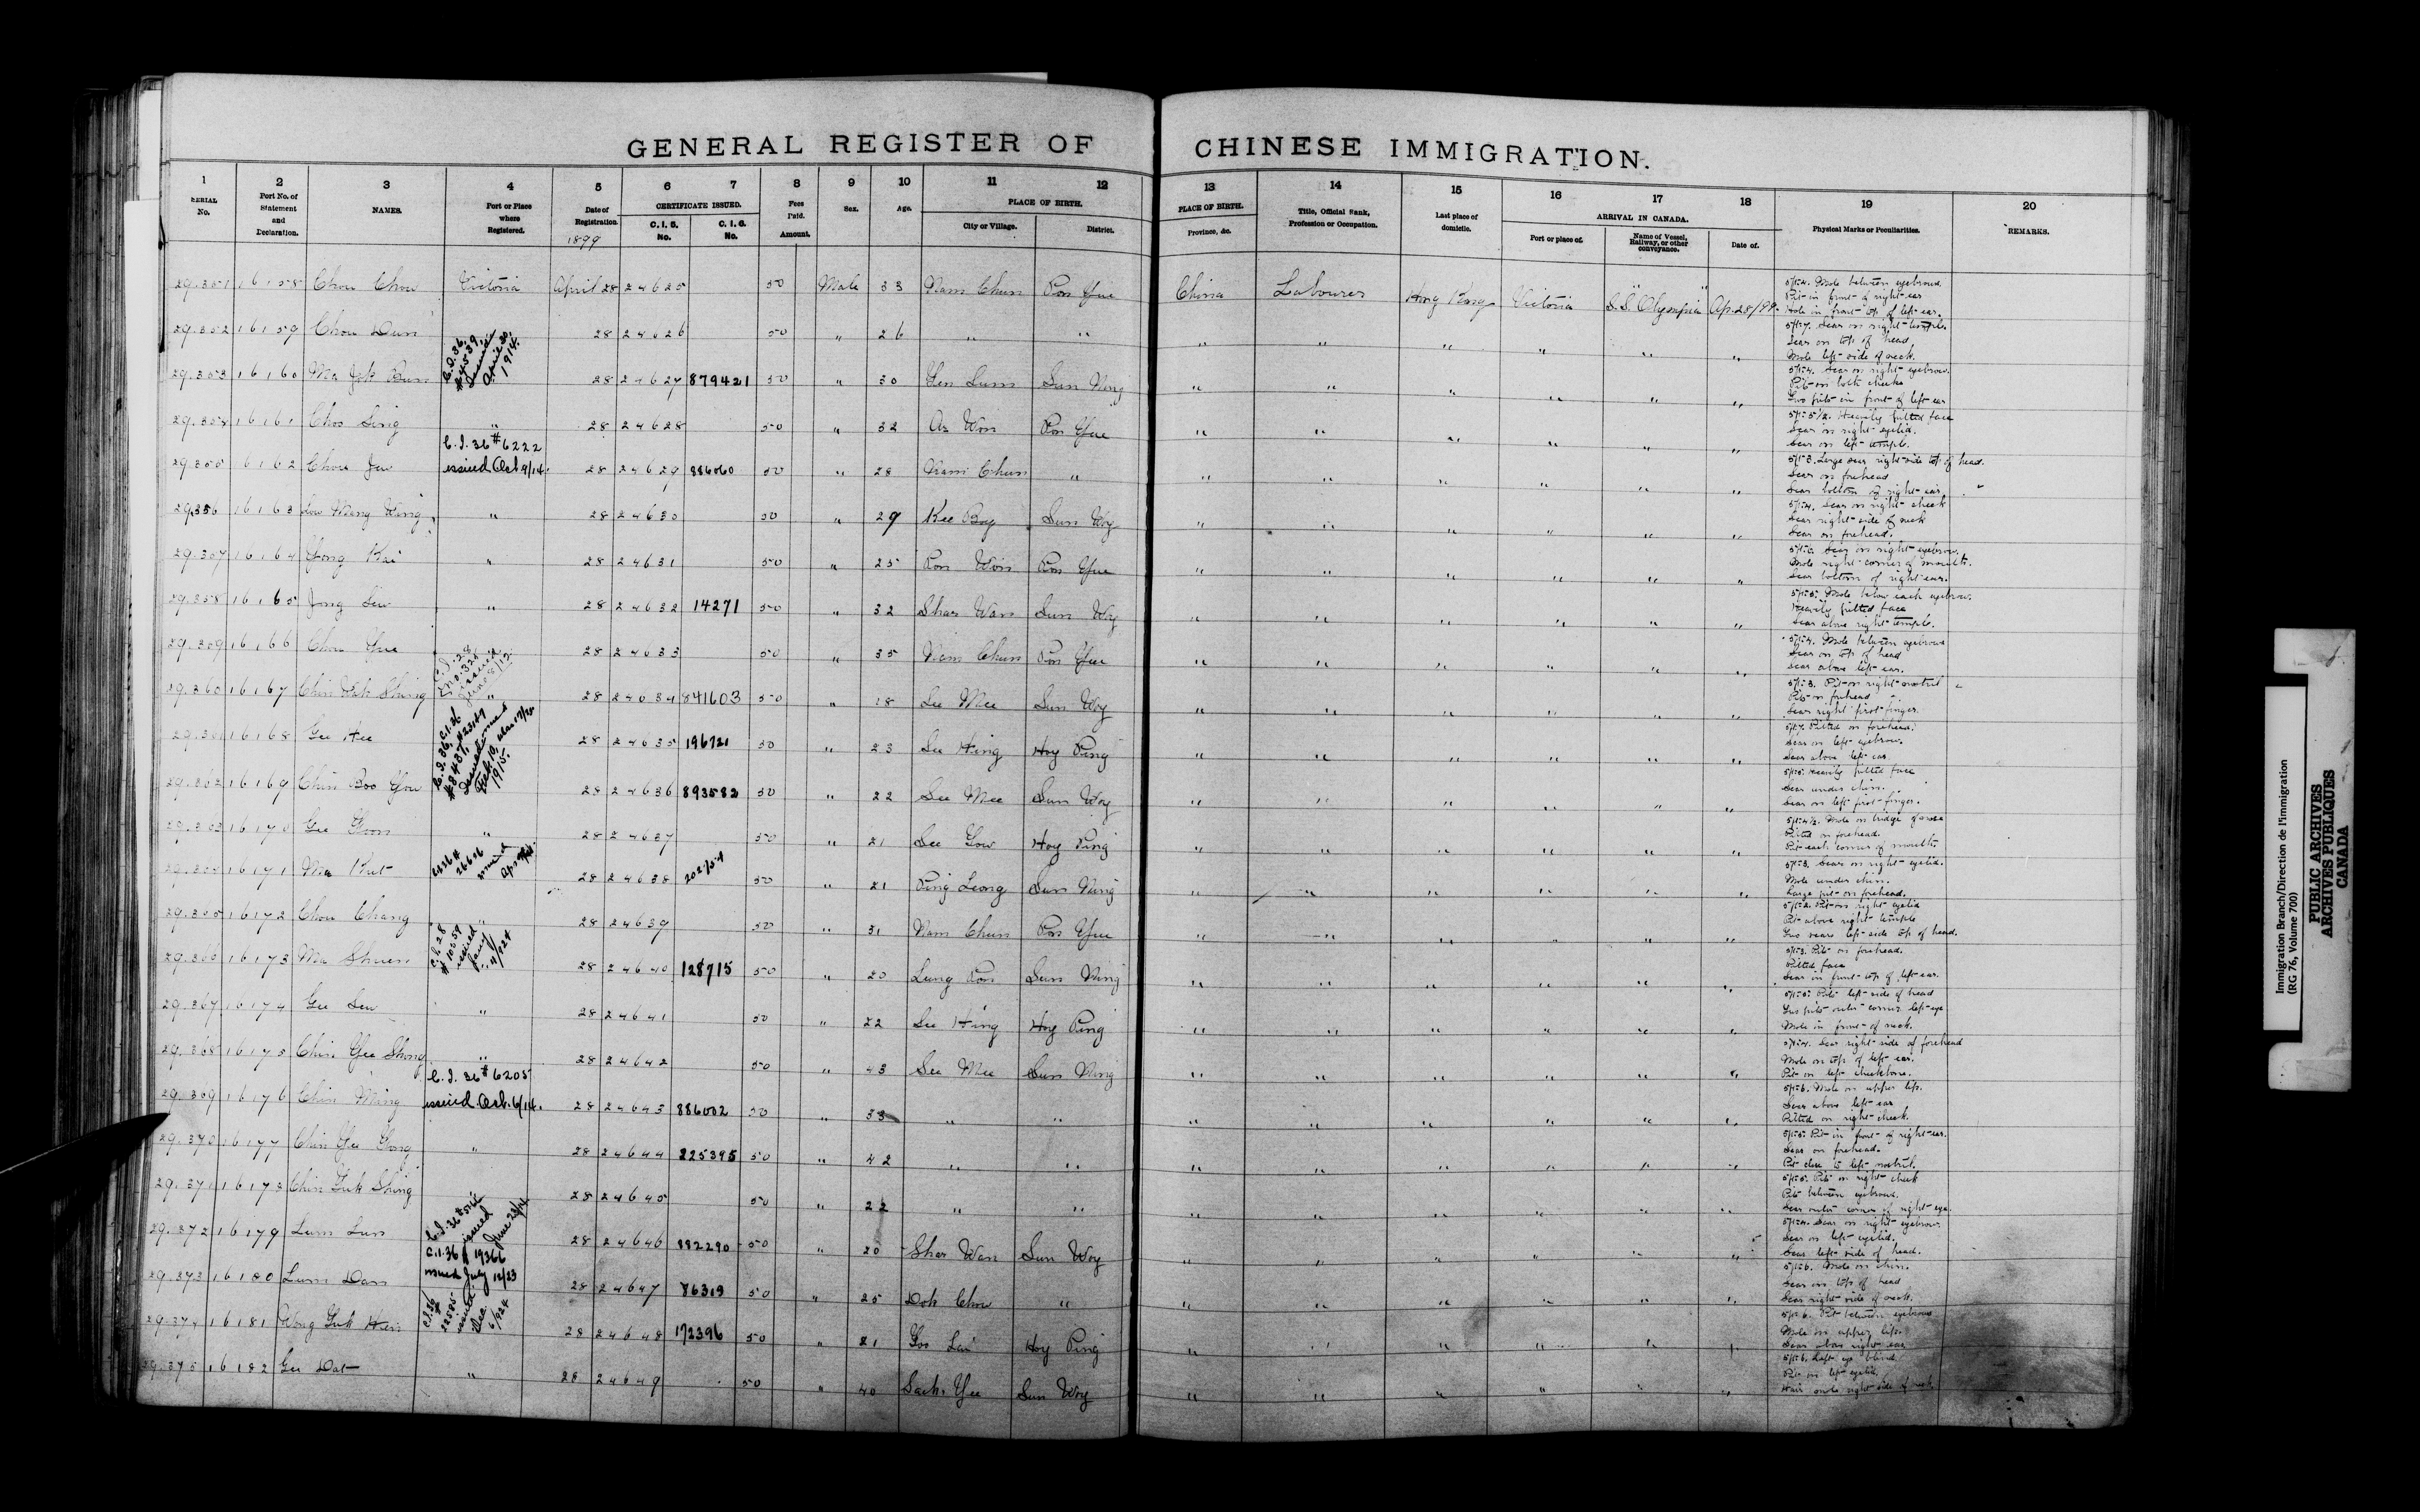 GENERAL REGISTER OF CHINESE IMMIGRATION.
1 2 3 4 5 6 7 8 9 10 11 12 13 14 15 16 17 18 19 20
SERIAL No. Port No. of Statement and Declaration. NAMES. Port or Place where Registered. Date of Registration. CERTIFICATE ISSUED. Fees Paid. Sex. Age. PLACE OF BIRTH. PLACE OF BIRTH. Title, Official Rank, Profession or Occupation. Last place of domicile. ARRIVAL IN CANADA. Physical Marks or Peculiarities. REMARKS.
C. I. 5. No. C. I. 6. No. Amount. City or Village. District. Province, &c. Port or place of. Name of Vessel, Railway, or other conveyance. Date of.
1899
29.351 16158 Chou Chow Victoria April 28 24625 50 Male 33 Nam Chun Pon Yue China Labourer Hong Kong Victoria S.S. "Olympia" Ap. 28/99.
5/1-4. Mole between eyebrows
Pit in front of right ear
Mole in front top of left ear.
29.352 16159 Chou Dun 28 24626 50 " 26 " " " " " " " "
5/1-7. Scar on right temple.
Scar on top of head
Mole left side of neck.
C.I. 36. #4539. Issued April 30. 1914.
29.353 16160 Ma Jek Bun 28 24627 879421 50 " 30 Yen Lum Sun Ning " " " " " "
5/1-4. Scar on right eyebrow.
Pit on both cheeks
Two pits in front of left ear
29.354 16161 Choo Sing " 28 24628 50 " 32 Ar Won Pon Yue " " " " " "
5/1-5 1/2. Heavily pitted face
Scar on right eyelid.
Scar on left temple.
C.I. 36 #6222
issued Oct 9/14.
29.355 16162 Chou Jew 28 24629 886060 50 " 28 Nam Chun " " " " " " "
5/1-3. Large scar right side top of head.
Scar on forehead
Scar bottom of right ear.
29.356 16163 Low Meng Wing " 28 24630 50 " 29 Kee Boy Sun Woy " " " " " "
5/1-4. Scar on right cheek
Scar right side of neck
Scar on forehead.
29.357 16164 Yong Kai " 28 24631 50 " 25 Pon Won Pon Yue " " " " " "
Scar on right eyebrow.
Mole right corner of mouth.
Scar bottom of right ear.
29.358 16165 Jong Sew " 28 24632 14271 50 " 32 Shar Wan Sun Woy " " " " " "
Mole below each eyebrow.
Heavily pitted face
Scar above right temple.
29.359 16166 Chou Yue 28 24633 50 " 35 Nam Chun Pon Yue " " " " " "
5/1-4. Mole between eyebrows
Scar on top of head
Scar above left ear.
29.360 16167 Chin Wok Shing " 28 24634 841603 50 " 18 See Mee Sun Woy " " " " " "
5/1-3. Pit on right nostril
Pit on forehead
Scar right first finger.
29.361 16168 Gee Hee 28 24635 196721 50 " 23 See Hing Hoy Ping " " " " " "
Pitted on forehead.
Scar on left eyebrow.
Scar above left ear.
29.362 16169 Chin Boo You 28 24636 893582 50 " 22 See Mee Sun Woy " " " " " "
Heavily pitted face
Scar under chin.
Scar on left first finger.
29.363 16170 Gee Yoon " 28 24637 50 " 21 See Gow Hoy Ping " " " " " "
5/1-4 1/2. Mole on bridge of nose
Pitted on forehead.
Pit each corner of mouth.
29.364 16171 Ma Kut 28 24638 50 " 21 Ping Leong Sun Ning " " " " " "
5/1-3. Scar on right eyelid.
Mole under chin.
Large pit on forehead.
29.365 16172 Chou Chang " 28 24639 50 " 31 Nam Chun Pon Yue " " " " " "
5/1-2. Pit on right eyelid
Pit above right temple
Two scars left side top of head.
29.366 16173 Ma Shuen 28 24640 128715 50 " 20 Lung Pon Sun Ning " " " " " "
5/1-3. Pit on forehead.
Pitted face
Scar in front top of left ear.
29.367 16174 Gee Sew " 28 24641 50 " 22 See Hing Hoy Ping " " " " " "
Pit left side of head
Two pits outer corner left eye
Mole in front of neck.
29.368 16175 Chin Yee Shong " 28 24642 50 " 43 See Mee Sun Ning " " " " " "
Scar right side of forehead
Mole on top of left ear.
Pit on left cheekbone.
C.I. 36 #6205
issued Oct. 6/14.
29.369 16176 Chin Ming 28 24643 886002 50 " 33 " " " " " " " "
5/1-6. Mole on upper lip.
Scar above left ear
Pitted on right cheek.
29.370 16177 Chin Yee Gong " 28 24644 225395 50 " 42 " " " " " " " "
Pit in front of right ear.
Scar on forehead.
Pit close to left nostril.
29.371 16178 Chin Yuk Shing 28 24645 50 " 22 " " " " " " " "
Pit on right cheek
Pit between eyebrows.
Scar outer corner of right eye.
29.372 16179 Lum Lun 28 24646 882290 50 " 20 Shar Wan Sun Woy " " " " " "
5/1-4. Scar on right eyebrow.
Scar on left eyelid.
Scar left side of head.
C.I. 36 # 19366
issued July 12/23
29.373 16180 Lum Dan 28 24647 86319 50 " 25 Dok Chow " " " " " " "
5/1-6. Mole on chin.
Scar on top of head
Scar right side of neck.
29.374 16181 Wong Yuk Hein 28 24648 172396 50 " 21 Goo Lai Hoy Ping " " " " " "
5/1-6. Pit between eyebrows
Mole on upper lip.
Scar above right ear
29.375 16182 Gee Dat " 28 24649 50 " 40 Sack Yee Sun Woy " " " " " "
5/1-6. Left eye blind.
Pit on left eyelid.
Hair mole right side of neck.
Immigration Branch/Direction de l'immigration
(RG 76, Volume 700)
PUBLIC ARCHIVES
ARCHIVES PUBLIQUES
CANADA